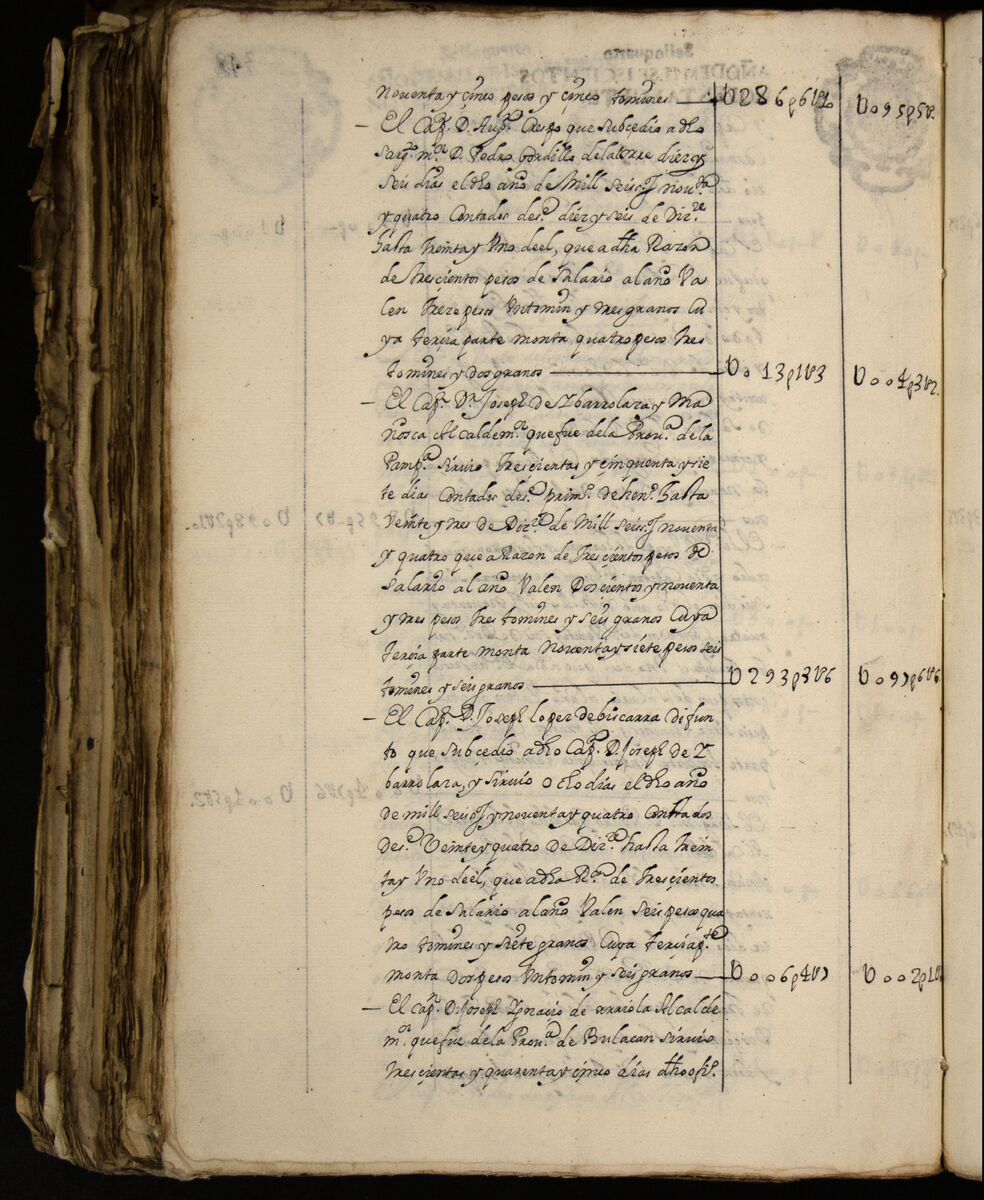 noventa y çinco pesos y çinco tomines — U286p6U10 U095p5U.
— El Capn. D. Augn. Crespo que subçedio a dho
sargto. mor. D. Pedro Gordillo de la torre diez y
seis dias el dho año de Mill seisos. y nouta
y quatro Contados desde. diez y seis de Dize
hasta treinta y Uno deel, que a dha Razon
de trescientos pesos de Salario al año Va
len treze pesos Un tomin y tres granos Cu
ya terçia parte monta quatro pesos tres
tomines y dos granos — U013p1U3 U004p3U2.
— El Capn. Dn. Joseph de Ybarrolaza y Ma
ñosca Alcalde mor. que fue de la Proua. de la
Pampga siruio trescientas y çinquenta y sie
te dias Contados desde. primo. de heno. hasta
veinte y tres de Dizre de Mill seisos. y nouenta
y quatro que a Razon de trescientos pesos de
salario al año Valen Dosçientos y nouenta
y tres pesos tres tomines y seis granos Cuya
terçia parte monta Nouenta y siete pesos seis
tomines y seis granos — U293p3U6 U097p6U6.
— El Capn. D. Joseph lopez de biscarra difun
to que subçedio a dho Capn. D. Joseph de Y
barrolaza, y siruio ocho dias el dho año
de mill seisos. y nouenta y quatro Contados
desde. Veinte y quatro de Dizre hasta trein
ta y Uno deel, que a dha Ron. de trescientos
pesos de salario al año Valen seis pesos qua
tro tomines y siete granos Cuya terçia pte
monta dos pesos Un tomin y seis granos — U006p4U7 U002p1U
— El Capn. D. Joseph Ygnacio de arriola Alcalde
mor. que fue de la Proua. de Bulacan siruio
trescientas y quarenta y çinco dias dho ofio.